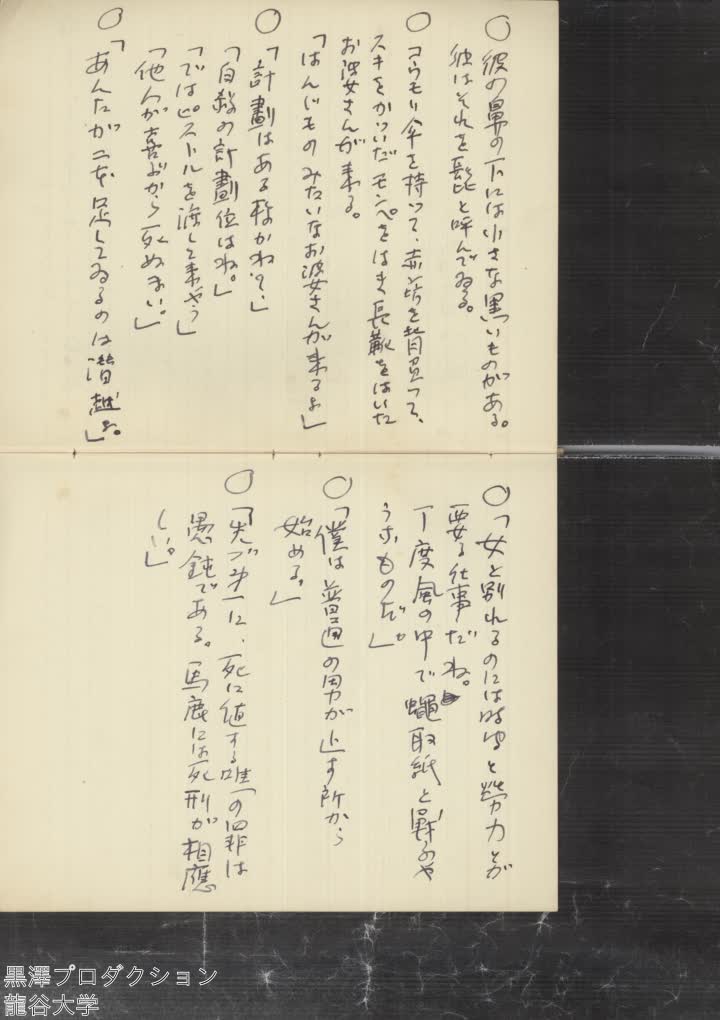 ○彼の鼻の下には小さな黒いものがある。
彼はそれを髭と呼んでゐる。
○コウモリ傘を持つて、赤ん坊を背負つて、
スキをかついだモンペをはき長靴をはいた
お婆さんが来る。
「はんじものみたいなお婆さんが来るよ」
○「計劃はある様かね？」
「自殺の計劃位はね。」
「ではピストルを渡して来やう」
「他人が喜ぶから死ぬまい。」
○「あんたが二本足してゐるのは潜越よ。」
○「女と別れるのには時間と勞力とが
要る仕事だね。
丁度風の中で蠅取紙と戰ふや
うなものだ。」
○「僕は普通の男が止す所から
始める。」
○「先づ第一に、死に値する唯一の罪は
愚鈍である。馬鹿には死刑が相應
しい。」
黒澤プロダクション
龍谷大学